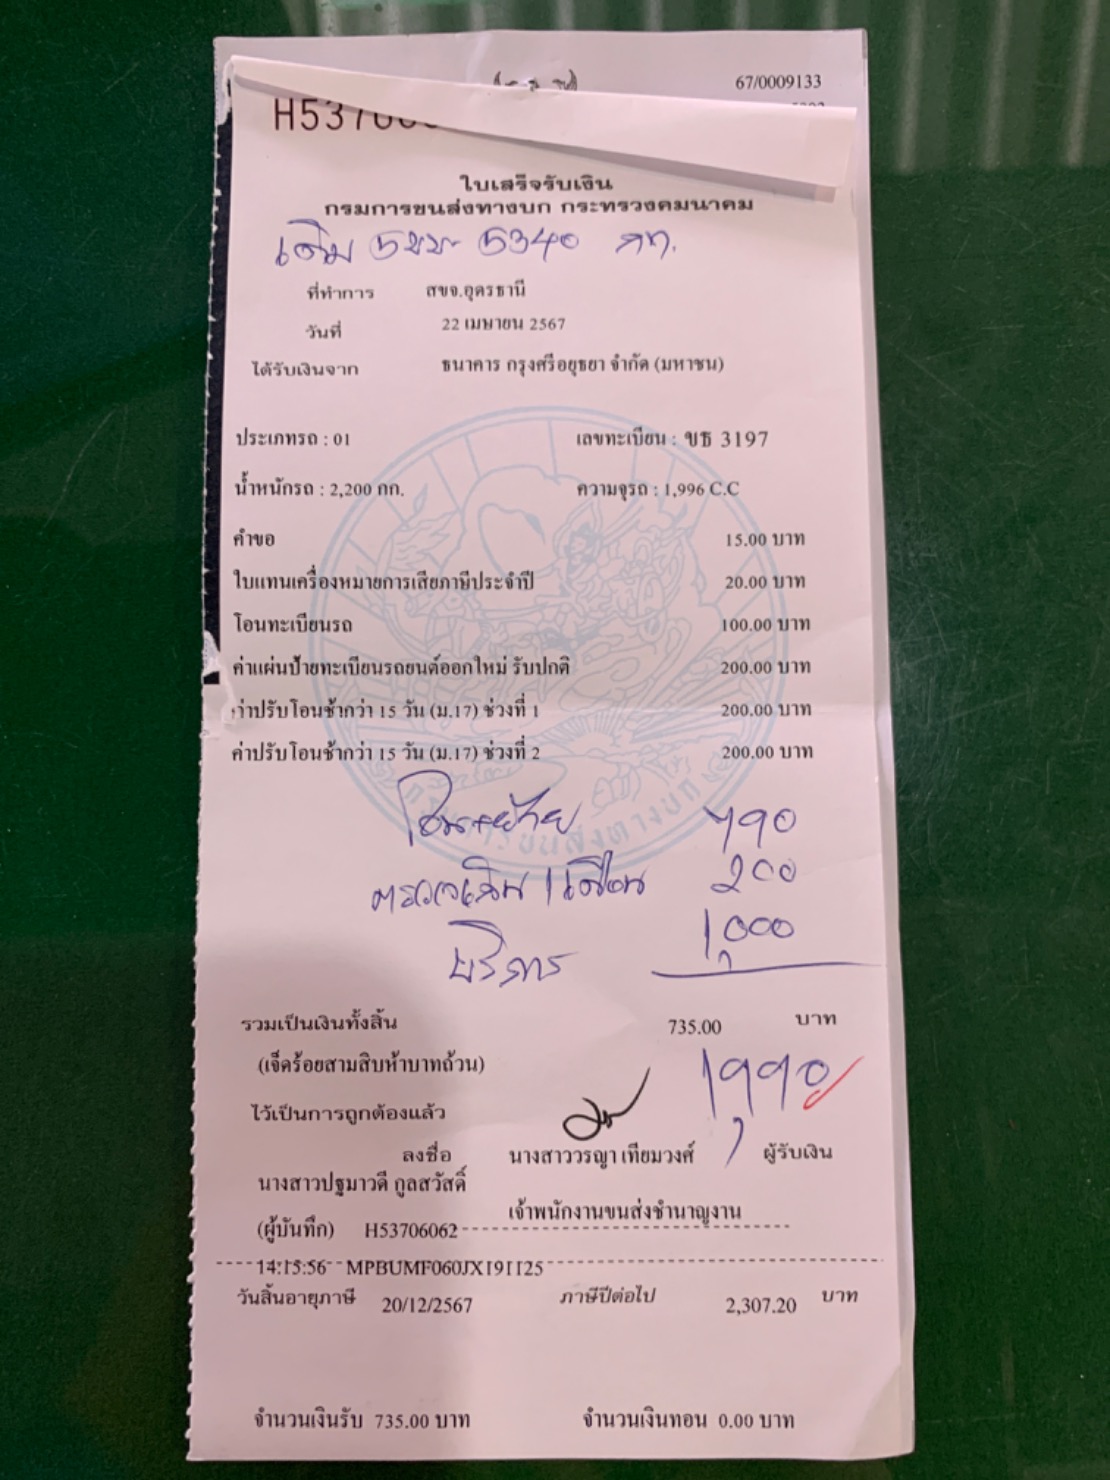 67/0009133
H53706
ใบเสร็จรับเงิน
กรมการขนส่งทางบก กระทรวงคมนาคม
เดิม 5ขช 5340 กท.
ที่ทำการ สขจ.อุดรธานี
วันที่ 22 เมษายน 2567
ได้รับเงินจาก ธนาคาร กรุงศรีอยุธยา จำกัด (มหาชน)
ประเภทรถ : 01 เลขทะเบียน : ขธ 3197
น้ำหนักรถ : 2,200 กก. ความจุรถ : 1,996 C.C
คำขอ 15.00 บาท
ใบแทนเครื่องหมายการเสียภาษีประจำปี 20.00 บาท
โอนทะเบียนรถ 100.00 บาท
ค่าแผ่นป้ายทะเบียนรถยนต์ออกใหม่ รับปกติ 200.00 บาท
ค่าปรับโอนช้ากว่า 15 วัน (ม.17) ช่วงที่ 1 200.00 บาท
ค่าปรับโอนช้ากว่า 15 วัน (ม.17) ช่วงที่ 2 200.00 บาท
กรมการขนส่งทางบก
โอน+ย้าย 790
ตรวจเกิน 1 เดือน 200
บริการ 1,000
รวมเป็นเงินทั้งสิ้น 735.00 บาท
(เจ็ดร้อยสามสิบห้าบาทถ้วน) 1,990
ไว้เป็นการถูกต้องแล้ว
ลงชื่อ นางสาววรญา เทียมวงศ์ ผู้รับเงิน
นางสาวปฐมาวดี กูลสวัสดิ์
เจ้าพนักงานขนส่งชำนาญงาน
(ผู้บันทึก) H53706062
14:15:56 MPBUMF060JX191125
วันสิ้นอายุภาษี 20/12/2567 ภาษีปีต่อไป 2,307.20 บาท
จำนวนเงินรับ 735.00 บาท จำนวนเงินทอน 0.00 บาท